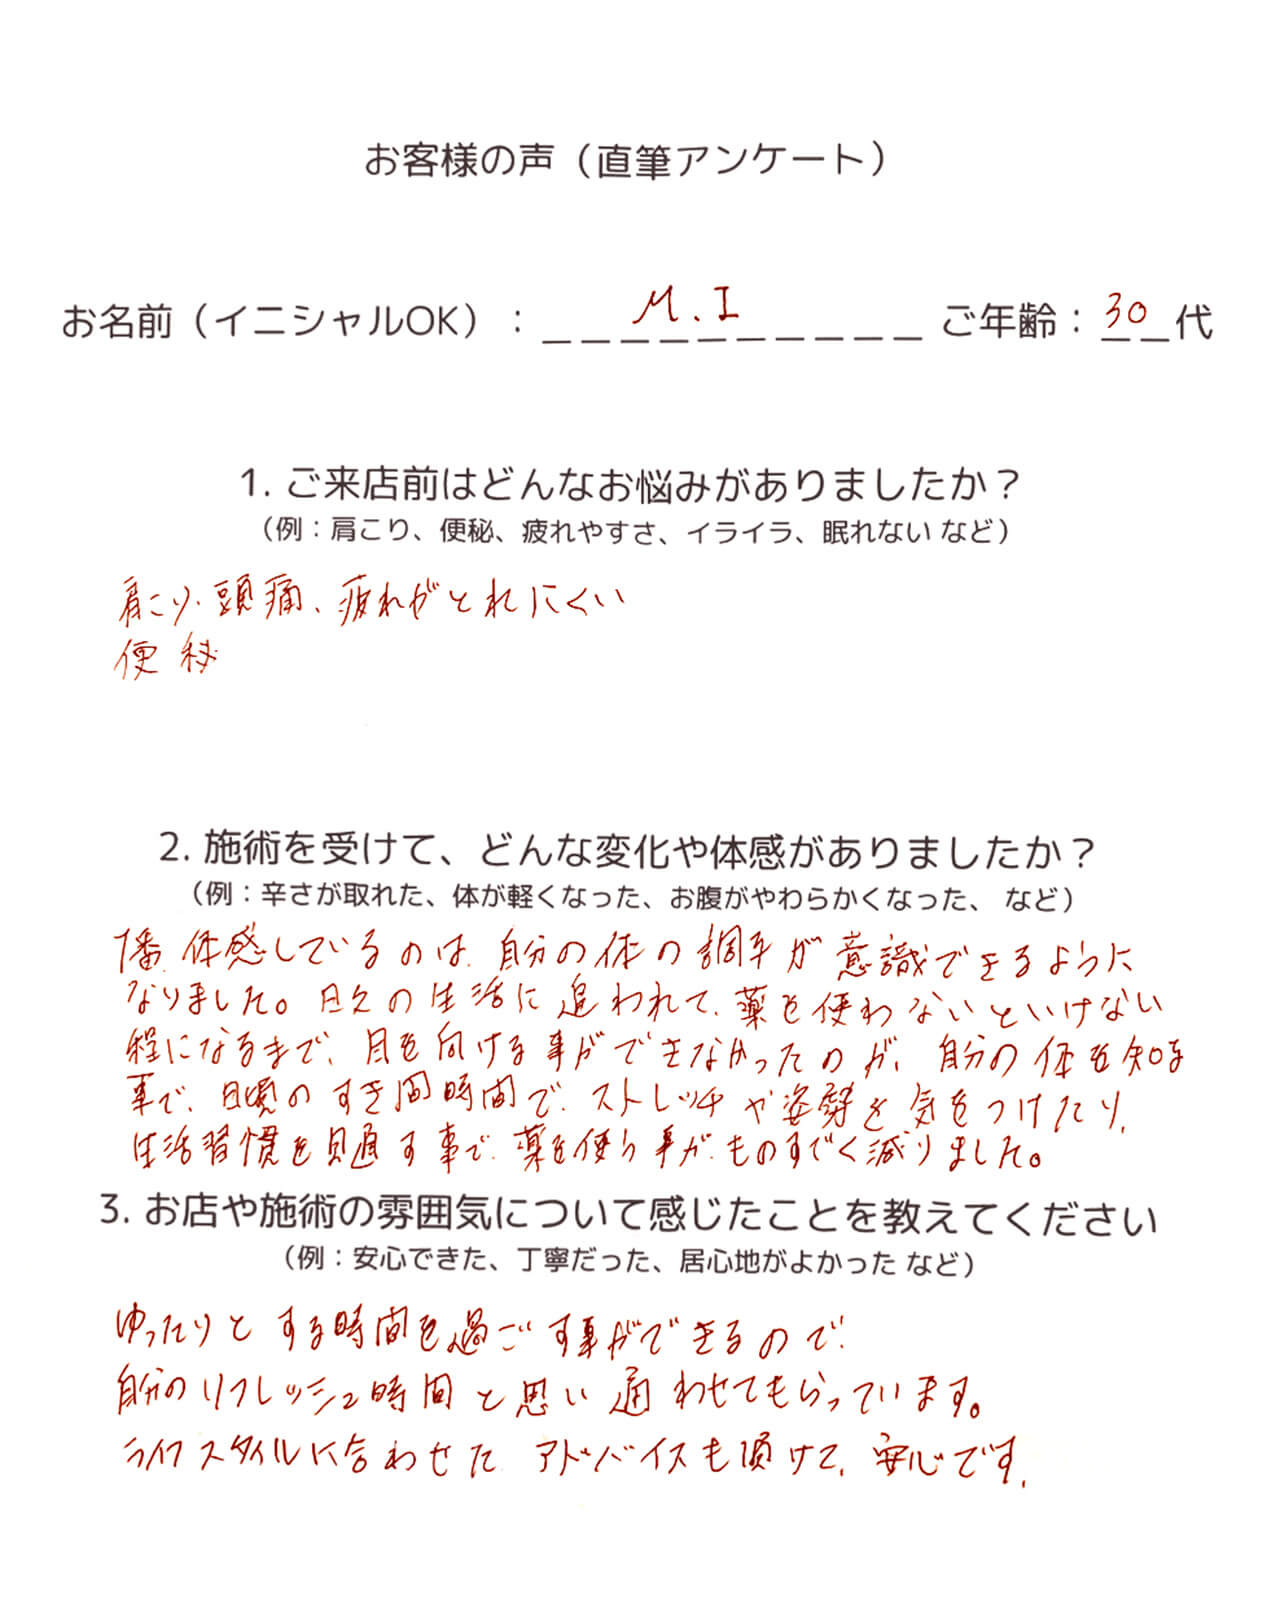 お客様の声（直筆アンケート）
お名前（イニシャルOK）： M.I ご年齢：30代
1. ご来店前はどんなお悩みがありましたか？
（例：肩こり、便秘、疲れやすさ、イライラ、眠れない など）
肩こり・頭痛、疲れがとれにくい
便秘
2. 施術を受けて、どんな変化や体感がありましたか？
（例：辛さが取れた、体が軽くなった、お腹がやわらかくなった、 など）
1番、体感しているのは、自分の体の調子が意識できるように
なりました。日々の生活に追われて、薬を使わないといけない
程になるまで、目を向ける事ができなかったのが、自分の体を知る
事で、日頃のすき間時間で、ストレッチや姿勢を気をつけたり、
生活習慣を見直す事で、薬を使う事が、ものすごく減りました。
3. お店や施術の雰囲気について感じたことを教えてください
（例：安心できた、丁寧だった、居心地がよかった など）
ゆったりとする時間を過ごす事ができるので、
自分のリフレッシュ時間と思い通わせてもらっています。
ライフスタイルに合わせたアドバイスも頂けて、安心です。